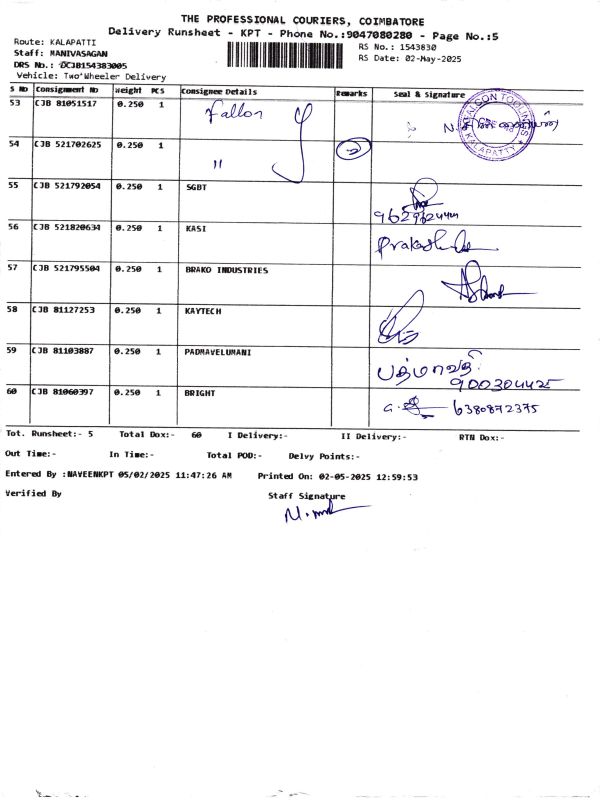 THE PROFESSIONAL COURIERS, COIMBATORE
Delivery Runsheet - KPT - Phone No.:9047080280 - Page No.:5
Route: KALAPATTI
RS No.: 1543830
Staff: MANIVASAGAN
RS Date: 02-May-2025
DRS No.: DCJB154383005
Vehicle: Two'Wheeler Delivery
S No Consignment No Weight PCS Consignee Details Remarks Seal & Signature
53 CJB 81051517 0.250 1 Fallon
54 CJB 521702625 0.250 1 "
KALAPATTY
55 CJB 521792054 0.250 1 SGBT
56 CJB 521820634 0.250 1 KASI Prakash
57 CJB 521795504 0.250 1 BRAKO INDUSTRIES
58 CJB 81127253 0.250 1 KAYTECH
59 CJB 81103887 0.250 1 PADMAVELUMANI பத்மாவதி
900304425
60 CJB 81060397 0.250 1 BRIGHT 6380872375
Tot. Runsheet:- 5 Total Dox:- 60 I Delivery:- II Delivery:- RTN Dox:-
Out Time:- In Time:- Total POD:- Delvy Points:-
Entered By :NAVEENKPT 05/02/2025 11:47:26 AM Printed On: 02-05-2025 12:59:53
Verified By Staff Signature